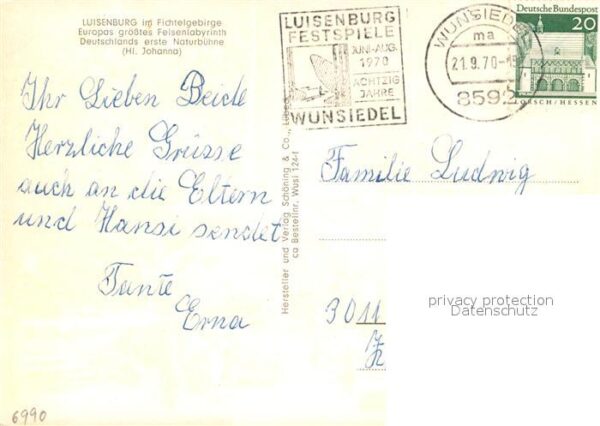 LUISENBURG im Fichtelgebirge
Europas größtes Felsenlabyrinth
Deutschlands erste Naturbühne
(Hl. Johanna)
Ihr Lieben Beide
Herzliche Grüsse
auch an die Eltern
und Hansi sendet
Tante
Erna
6990
Hersteller und Verlag Schöning & Co., Lübeck
ca Bestellnr. Wusi 124-f
LUISENBURG
FESTSPIELE
JUNI-AUG.
1970
ACHTZIG
JAHRE
WUNSIEDEL
WUNSIEDEL
ma
21.9.70-15
8592
Deutsche Bundespost
20
LORSCH/HESSEN
Familie Ludwig
3011
privacy protection
Datenschutz